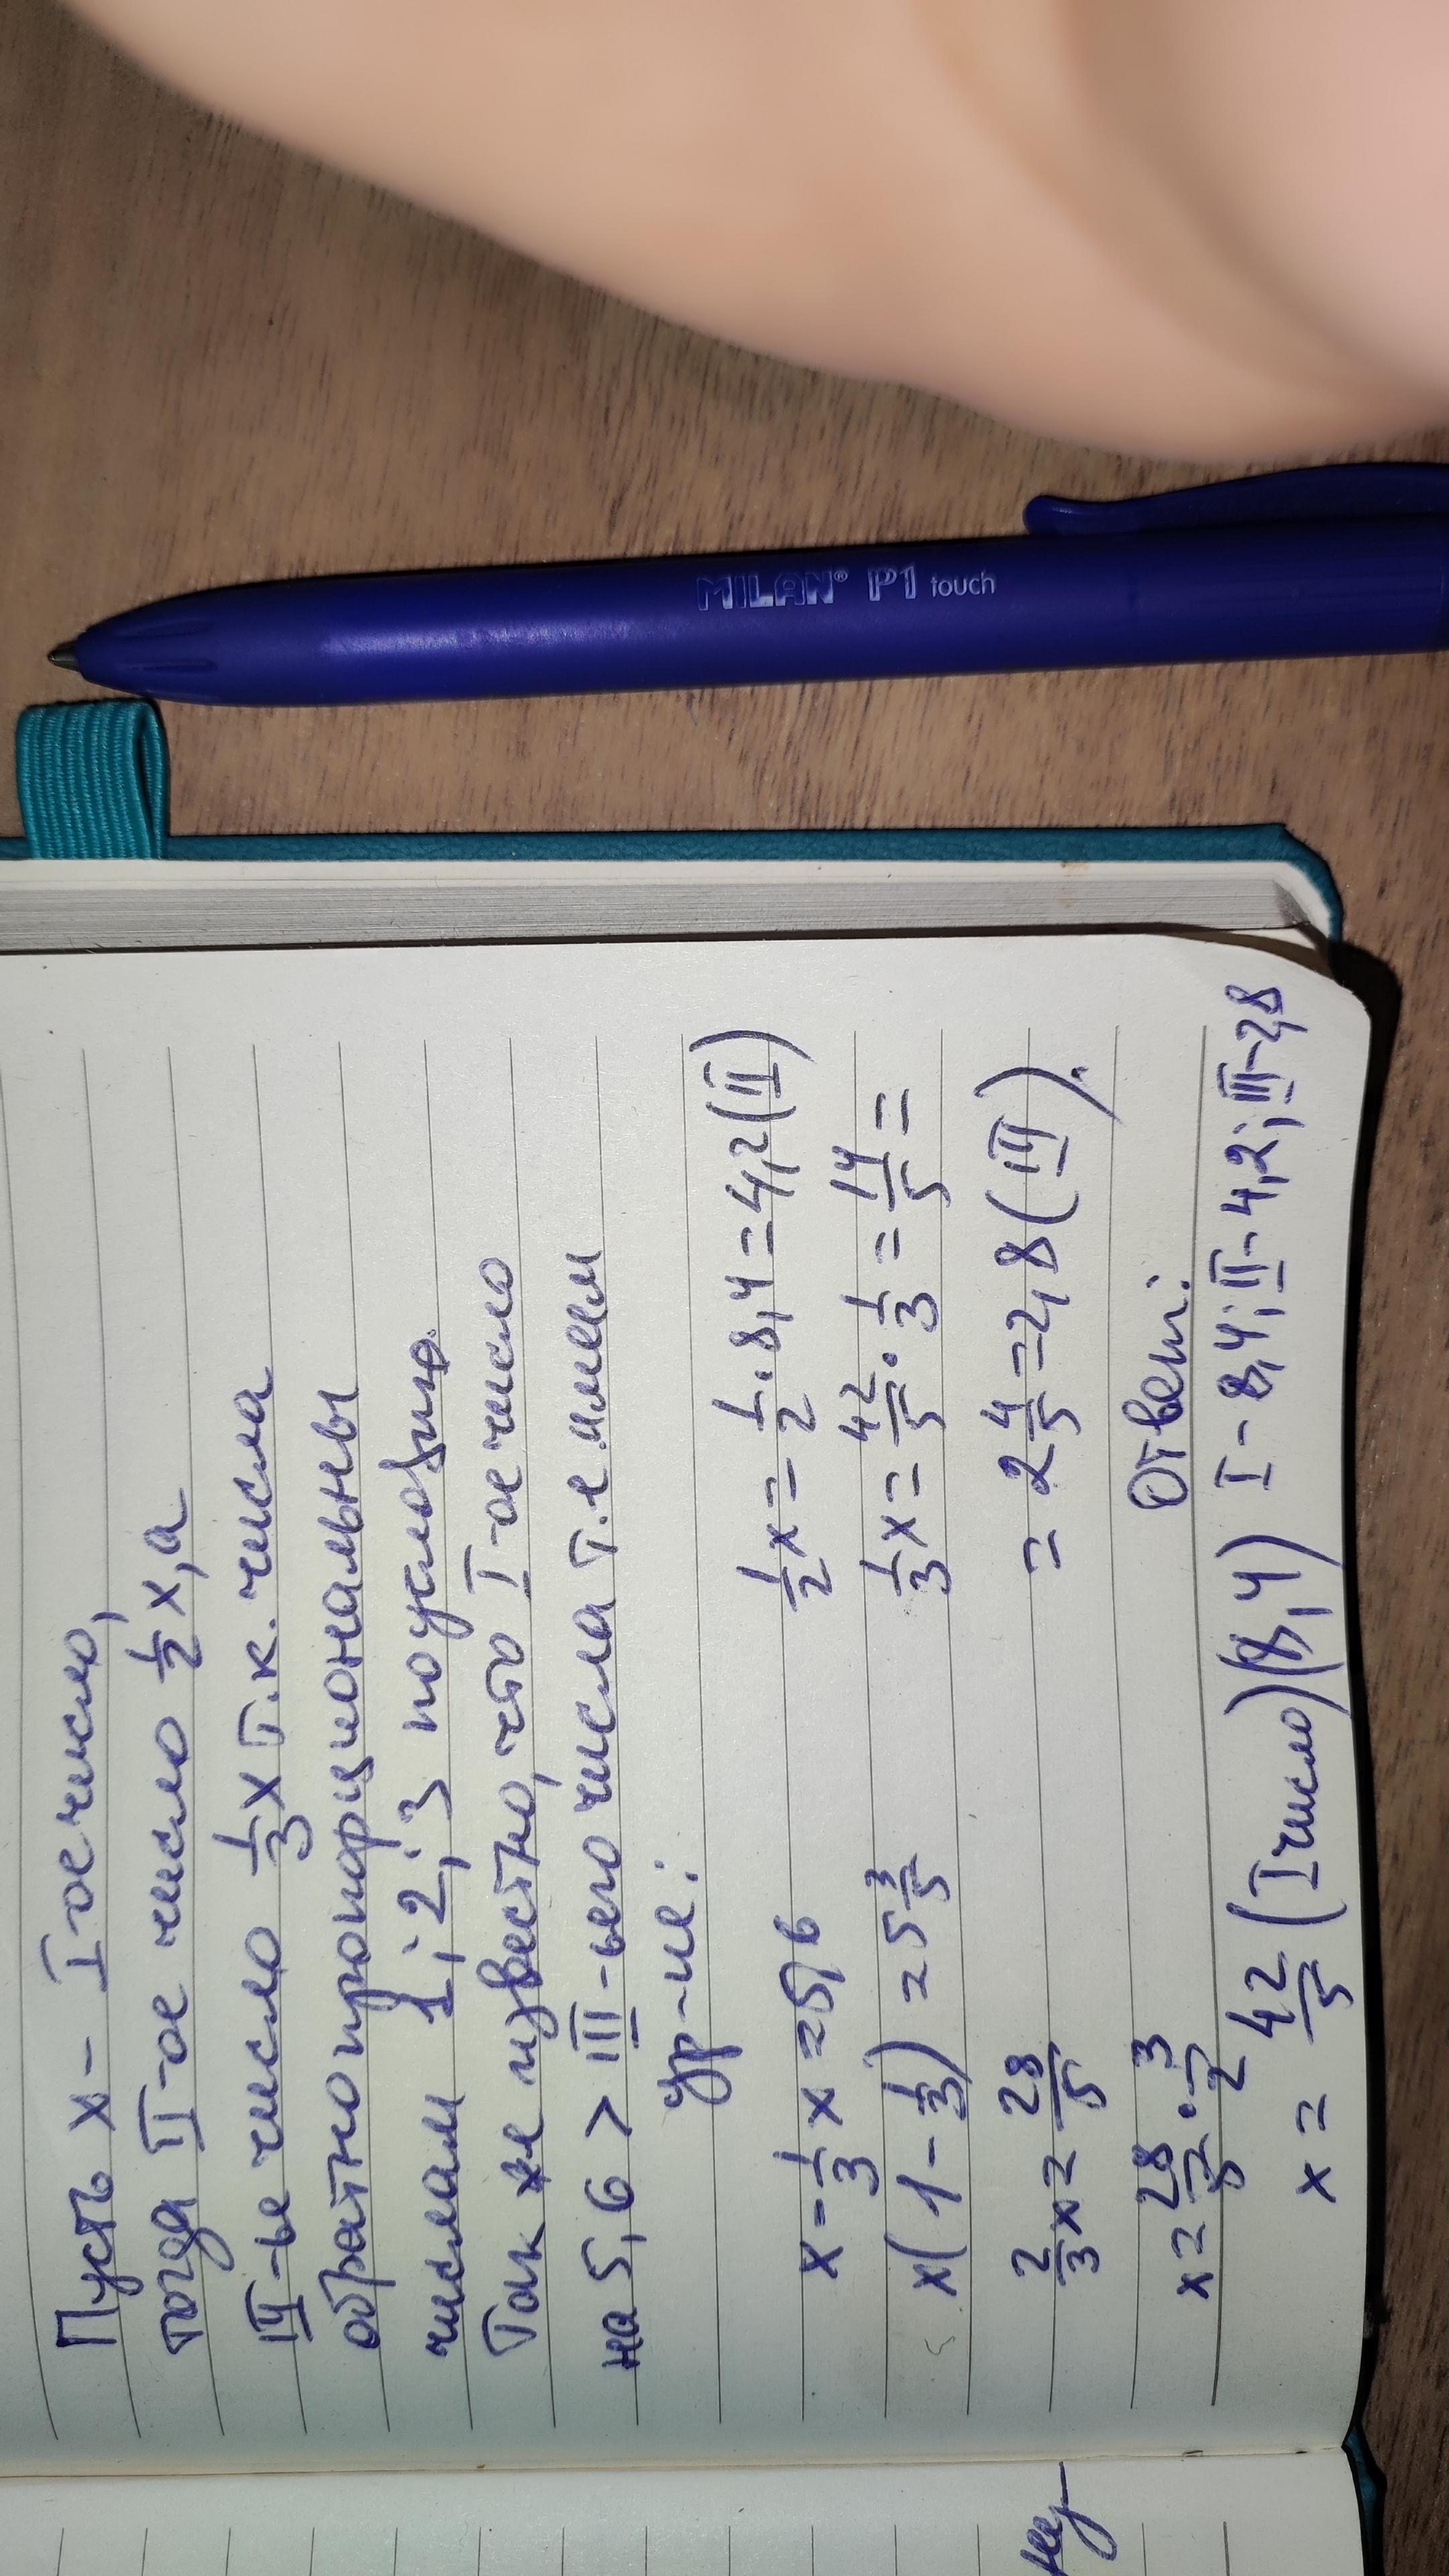 Пусть x - I-ое число,
тогда II-ое число 1/2 x, а
III-ье число 1/3 x т.к. числа
обратнопропорциональны
числам 1; 2; 3 по условию.
Так же известно, что I-ое число
на 5,6 > III-ьего числа т.е имеем
ур-ие:
x - 1/3 x = 5,6
x(1 - 1/3) = 5 3/5
2/3 x = 28/5
x = 28/5 · 3/2
x = 42/5 (I число) (8,4)
1/2 x = 1/2 · 8,4 = 4,2 (II)
1/3 x = 42/5 · 1/3 = 14/5 =
= 2 4/5 = 2,8 (III).
Ответ:
I - 8,4; II - 4,2; III - 2,8
MILAN® P1 touch